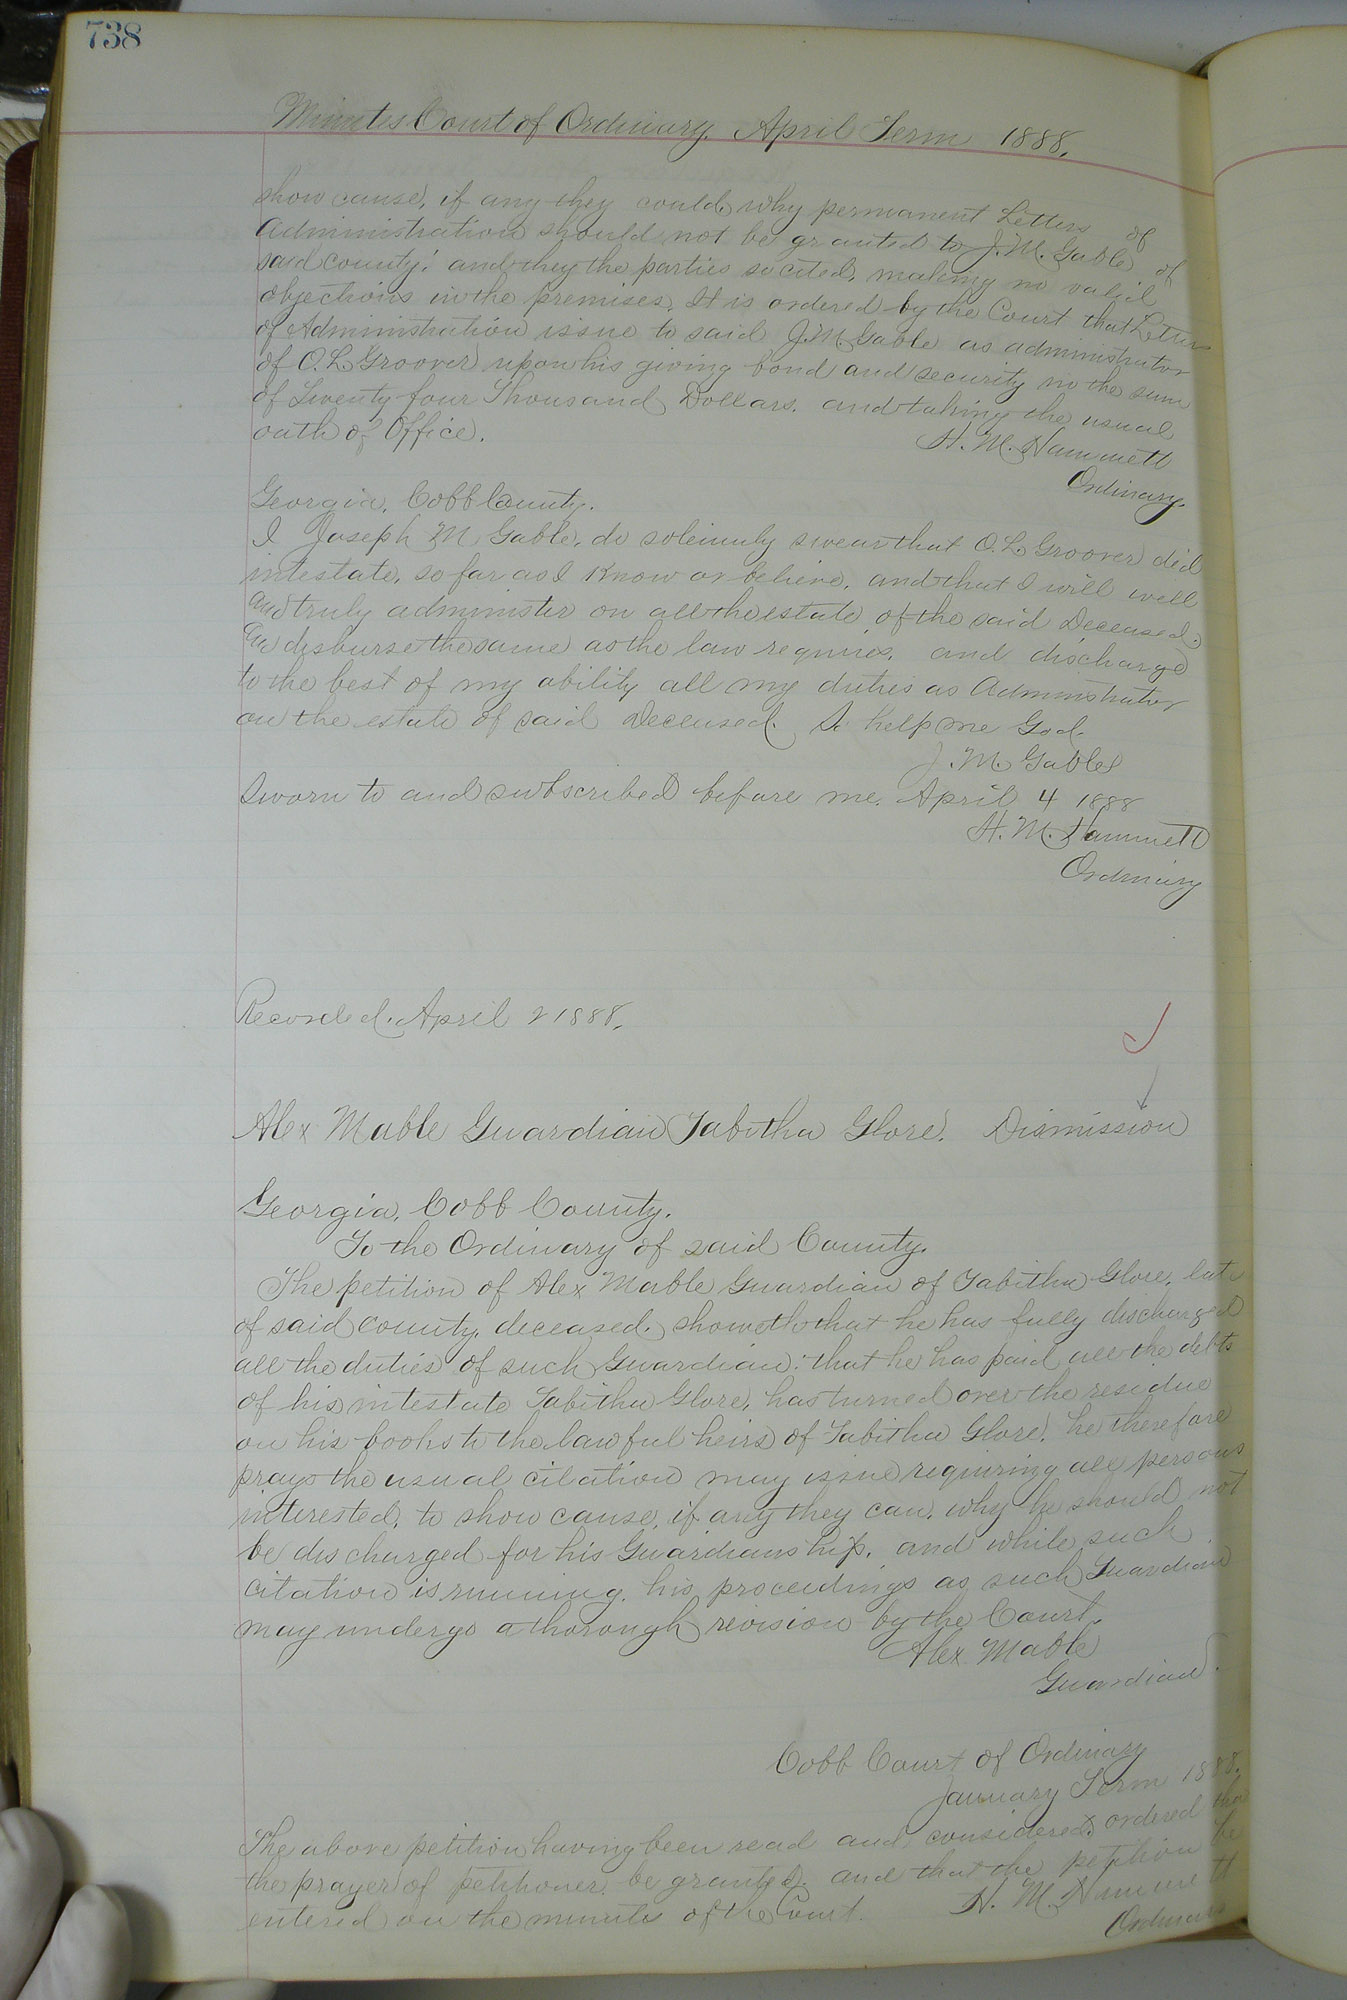 738
Minutes Court of Ordinary, April Term 1888.
show cause, if any they could, why permanent Letters of
Administration should not be granted to J. M. Gable, of
said county; and they the parties so cited, making no valid
objections in the premises, It is ordered by the Court that Letters
of Administration issue to said J. M. Gable as administrator
of O. L. Groover upon his giving bond and security in the sum
of Twenty four Thousand Dollars. and taking the usual
oath of Office.
H. M. Hammett
Ordinary.
Georgia, Cobb County.
I Joseph M Gable, do solemnly swear that O. L. Groover died
intestate, so far as I know or believe, and that I will well
and truly administer on all the estate of the said Deceased,
and disburse the same as the law requires, and discharge
to the best of my ability all my duties as Administrator
on the estate of said Deceased. So help me God.
J. M. Gable
Sworn to and subscribed before me. April 4 1888
H. M. Hammett
Ordinary
Recorded. April 2 1888.
Alex Mable Guardian Tabitha Glore. Dismission
Georgia, Cobb County.
To the Ordinary of said County.
The petition of Alex Mable Guardian of Tabitha Glore, late
of said county, deceased. showeth that he has fully discharged
all the duties of such Guardian: that he has paid all the debts
of his intestate Tabitha Glore, has turned over the residue
on his books to the lawful heirs of Tabitha Glore. he therefore
prays the usual citation may issue requiring all persons
interested, to show cause, if any they can, why he should not
be discharged for his Guardianship. and while such
citation is running, his proceedings as such Guardian
may undergo a thorough revision by the Court.
Alex. Mable
Guardian.
Cobb Court of Ordinary
January Term 1888.
The above petition having been read and considered, ordered that
the prayer of petitioner be granted. and that the petition be
entered on the minutes of the Court.
H. M. Hammett
Ordinary